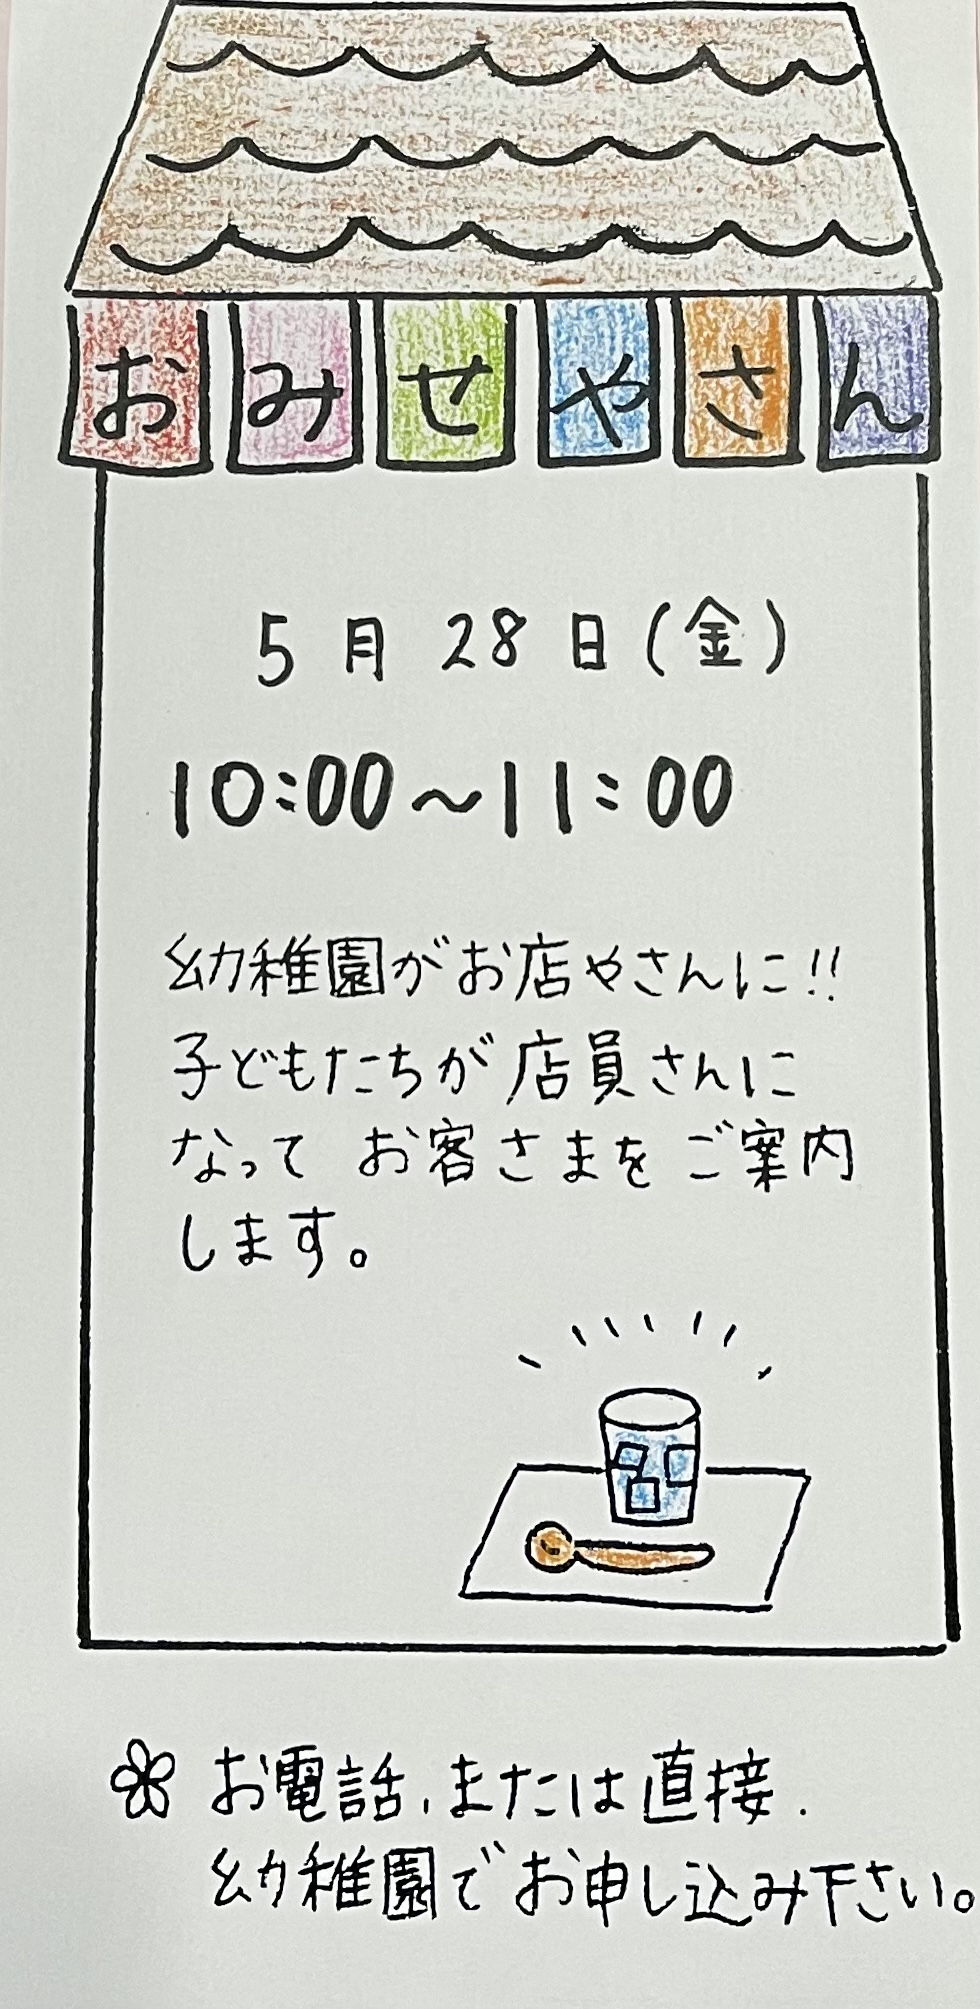 おみせやさん
5月28日(金)
10:00～11:00
幼稚園がお店やさんに!!
子どもたちが店員さんに
なって お客さまをご案内
します。
お電話、または直接、
幼稚園でお申し込み下さい。